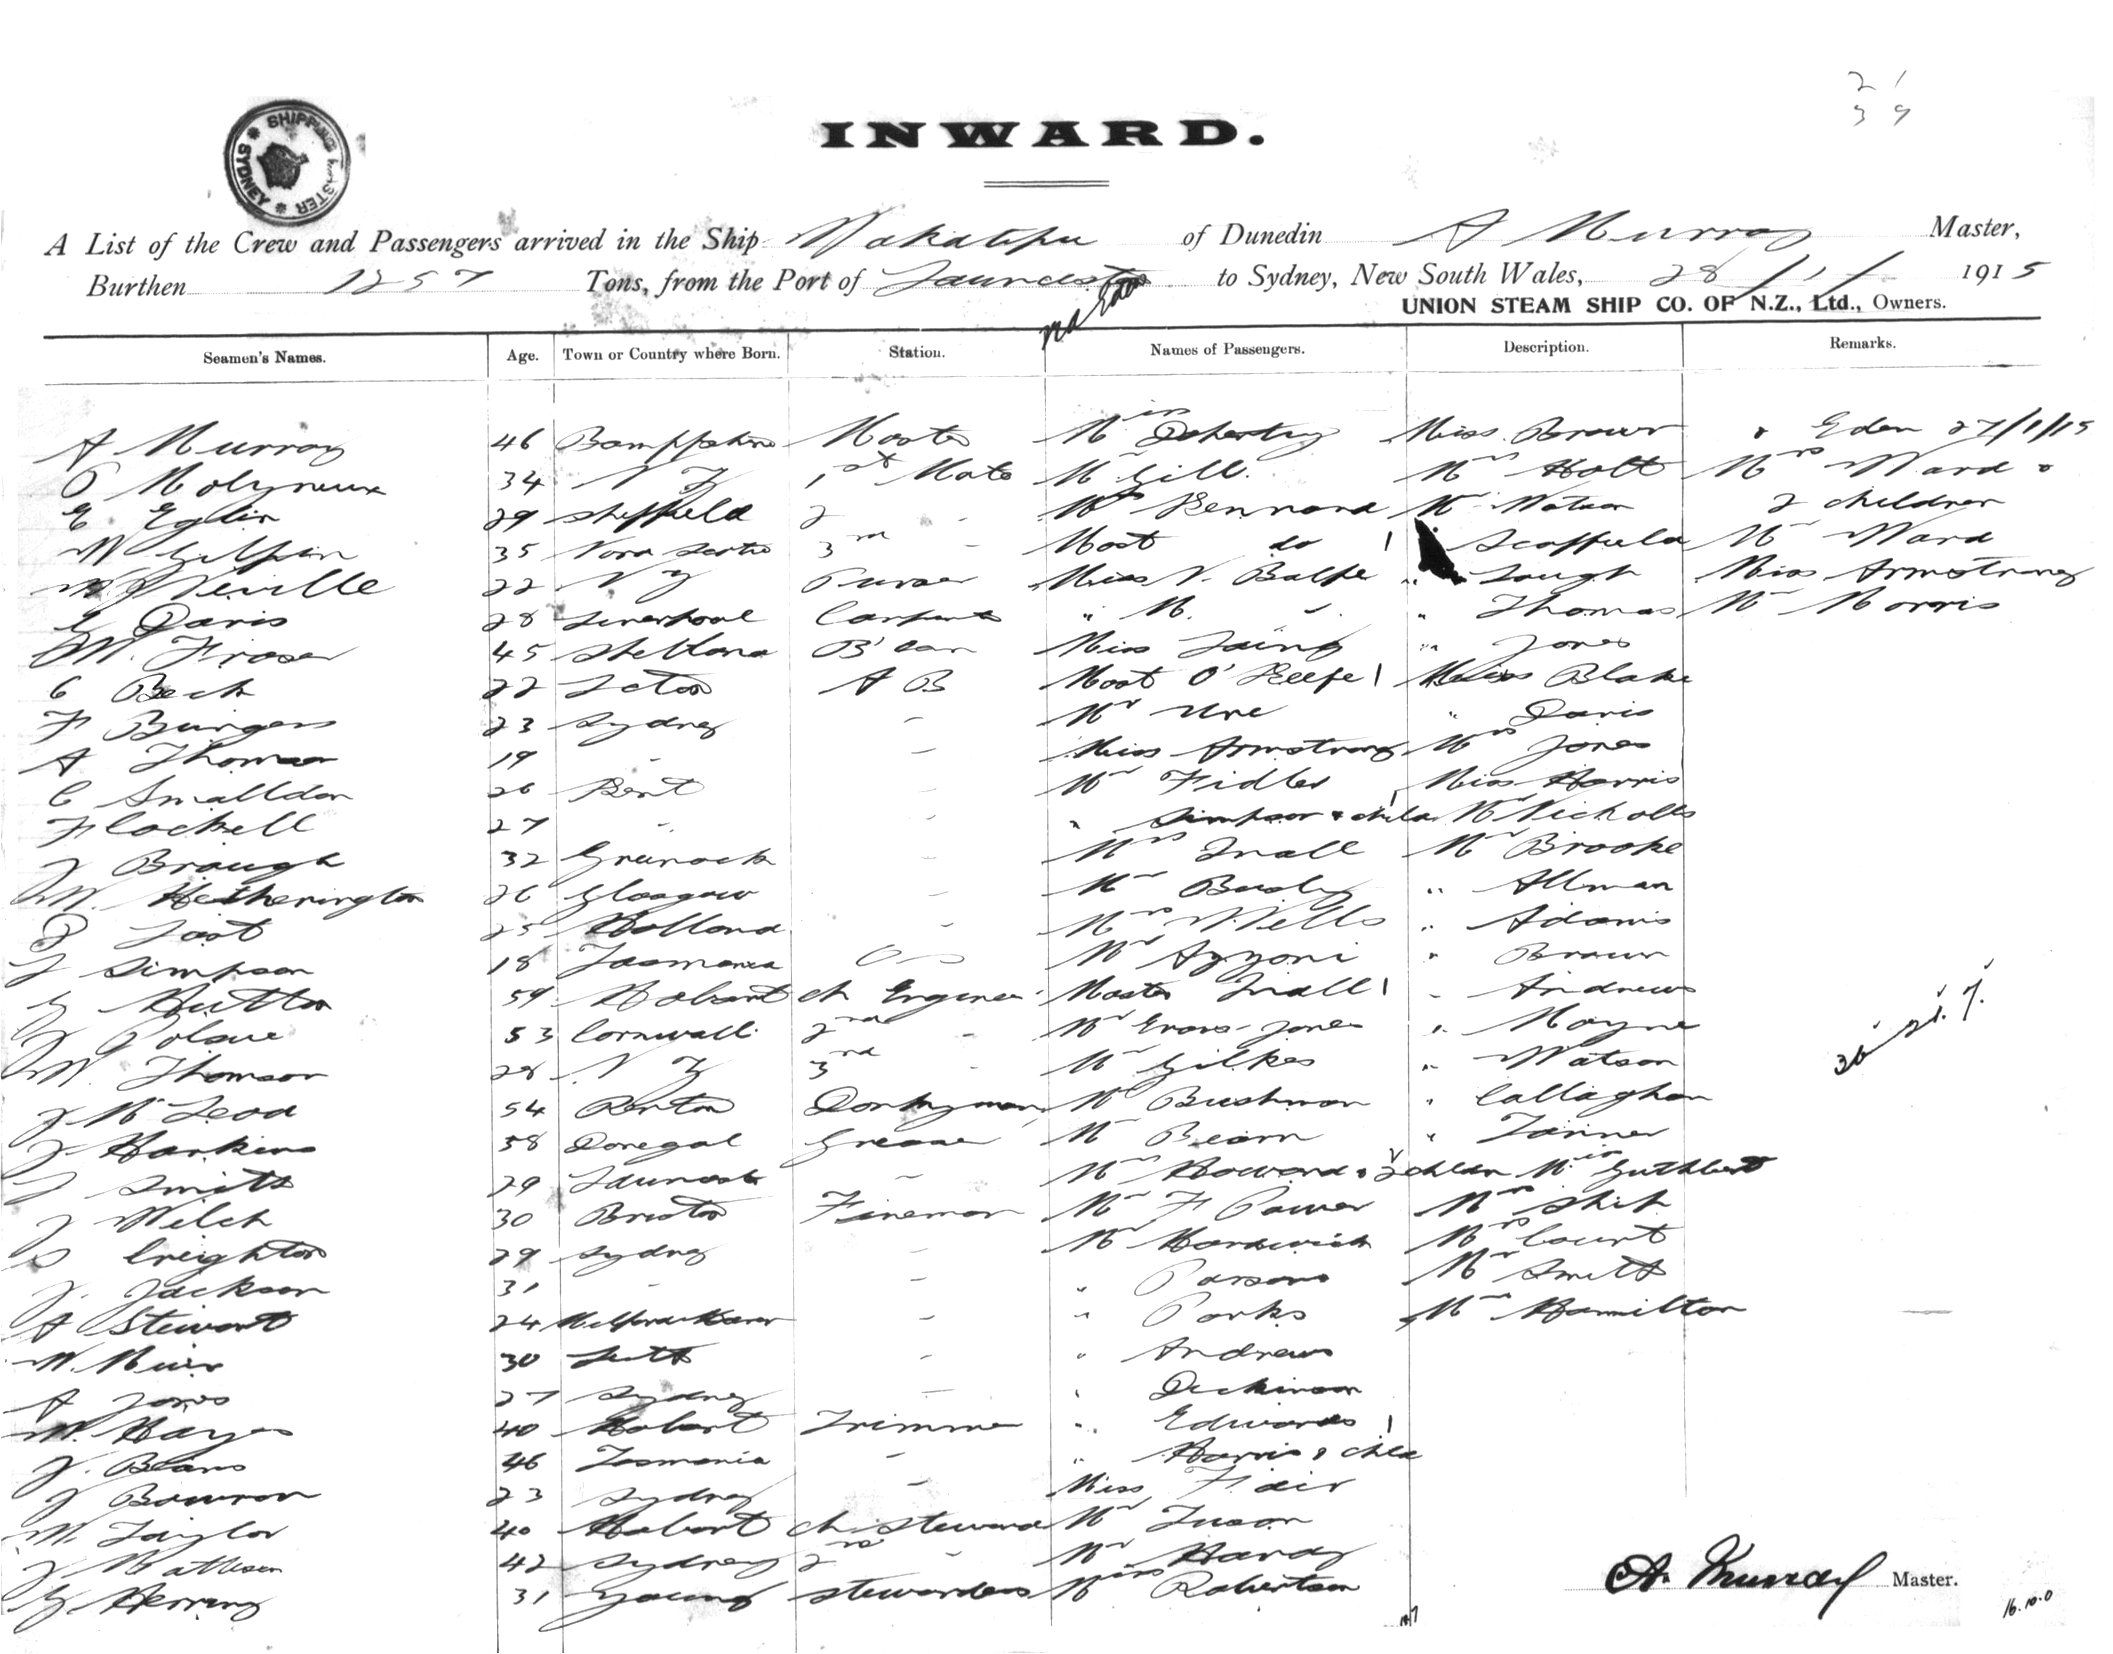 2 1
3 9
SHIPPING MASTER
SYDNEY
INWARD.
A List of the Crew and Passengers arrived in the Ship Wakatipu of Dunedin A Murray Master,
Burthen 1257 Tons, from the Port of Launceston to Sydney, New South Wales, 28/1/ 1915
UNION STEAM SHIP CO. OF N.Z., Ltd., Owners.
Seamen's Names. Age. Town or Country where Born. Station. Names of Passengers. Description. Remarks.
A Murray 46 Banffshire Master Mrs Doherty Miss Brown Eden 27/1/15
P Molyneux 34 N Z 1st Mate Mr Gill Mrs Holt Mrs Ward &
E Eglin 29 Sheffield 2 - Mrs Kennard Mr Watson 2 children
W Gilpin 35 Nova Scotia 3rd - Mast do 1 Scoffield Mr Ward
Neville 22 N Z Purser Miss V. Balfe " Gough Miss Armstrong
G Davis 28 Liverpool Carpenter " M. " " Thomas Mr Morris
M. Fraser 45 Shetland B'man Miss Laing " Jones
C Beck 22 A B Mast O'Keefe 1 Miss Blake
F Burgess 23 Sydney - Mr Ure " Davis
A Thomas 19 - - Miss Armstrong Mrs Jones
C Smalldon 26 Kent - Mr Fidler Miss Harris
F Cockell 27 - - " Simpson & child Mr Nicholls
J Brough 32 Greenock - Mrs Inall Mr Brooke
M. Hetherington 26 Glasgow - Mr Busby " Allman
P Tost 25 Holland - Mrs Wells " Adams
J Simpson 18 Tasmania O S Mr Azzoni " Brown
G Hutton 59 Hobart Ch Engineer Master Inall 1 " Andrews
J Polave 53 Cornwall 2nd - Mr Evans-Jones " Mayne
W. Thomson 28 N Z 3rd - Mr Gilkes " Watson
J McLeod 54 Renton Donkeyman Mr Bushman " Callaghan
J Harkins 58 Donegal Greaser Mr Beam " Tanner
J Smith 29 Launceston - Mrs Howard & 2 chldn Miss Cuthbert
J Welch 30 Bristol Fireman Mr F Power Mrs Shih
S Creighton 29 Sydney - Mr Hardwick Mrs Court
J. Jackson 31 - - " Parsons Mr Smith
A Stewart 24 Milford Haven - " Parks Mr Hamilton
W. Muir 30 Leith - " Andrews
A Jones 27 Sydney - " Dickinson
W. Hayes 40 Hobart Trimmer " Edwards
J. Beams 46 Tasmania - " Harris & child
J Bowron 23 Sydney - Miss Fair
W. Taylor 40 Hobart Ch Steward Mr Tuson
J Matheson 42 Sydney 2nd - Mr Hardy
G Herring 31 Young Stewardess Miss Robertson
A. Murray Master.
16.10.0